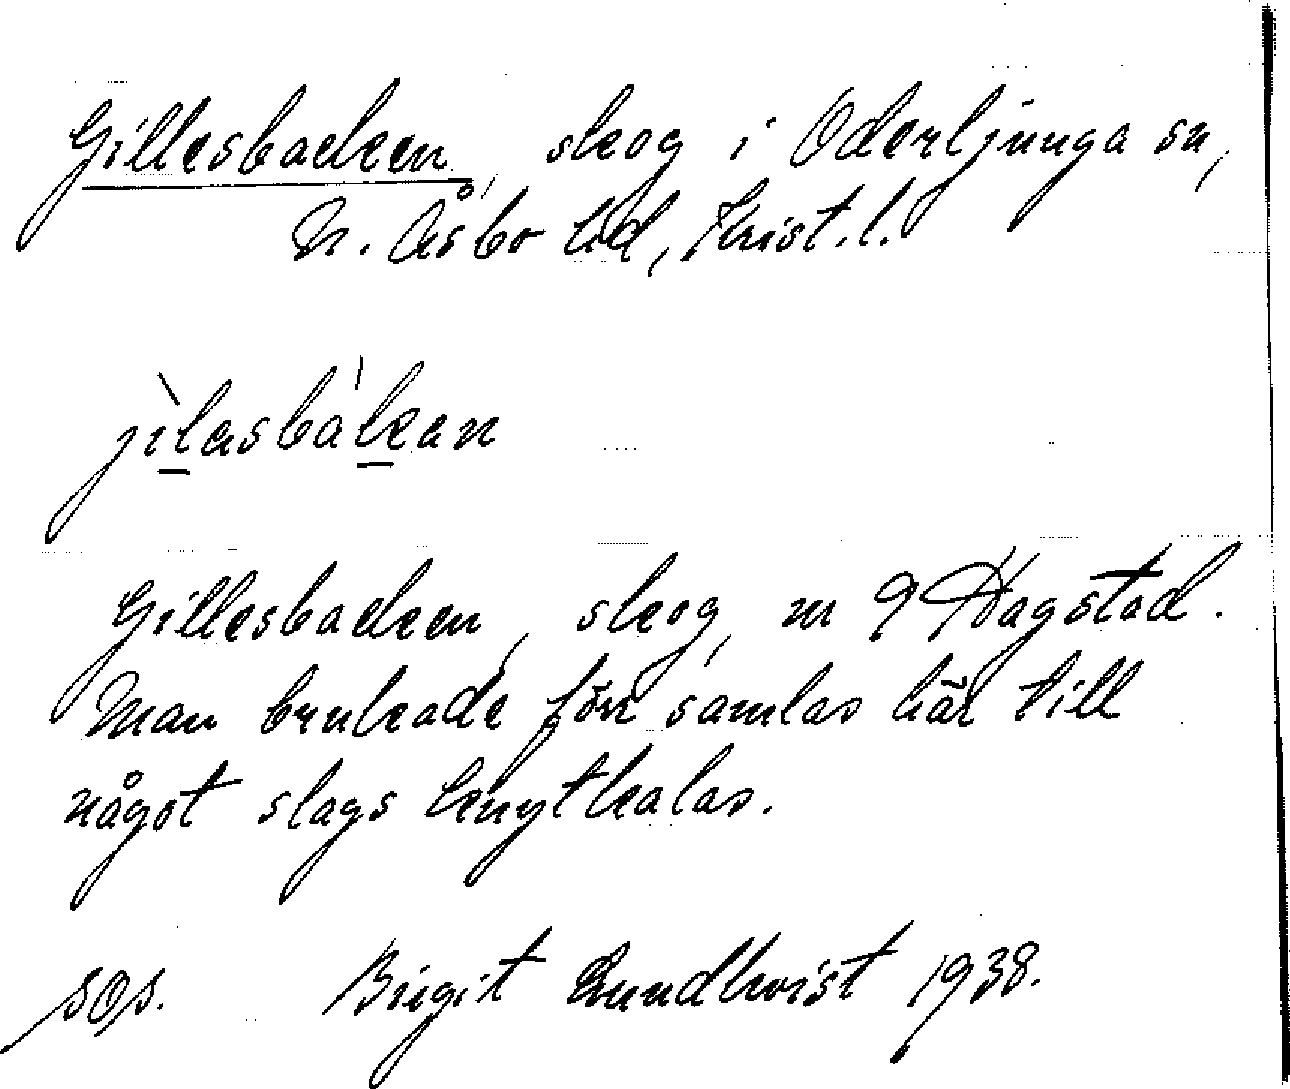 Gillesbacken, skog i Oderljunga sn,
N. Åsbo hd, Krist. l.
jìlasbákan
Gillesbacken, skog, m 9 Hagstad.
Man brukade förr samlas här till
något slags knytkalas.
Birgit Lundkvist 1938.